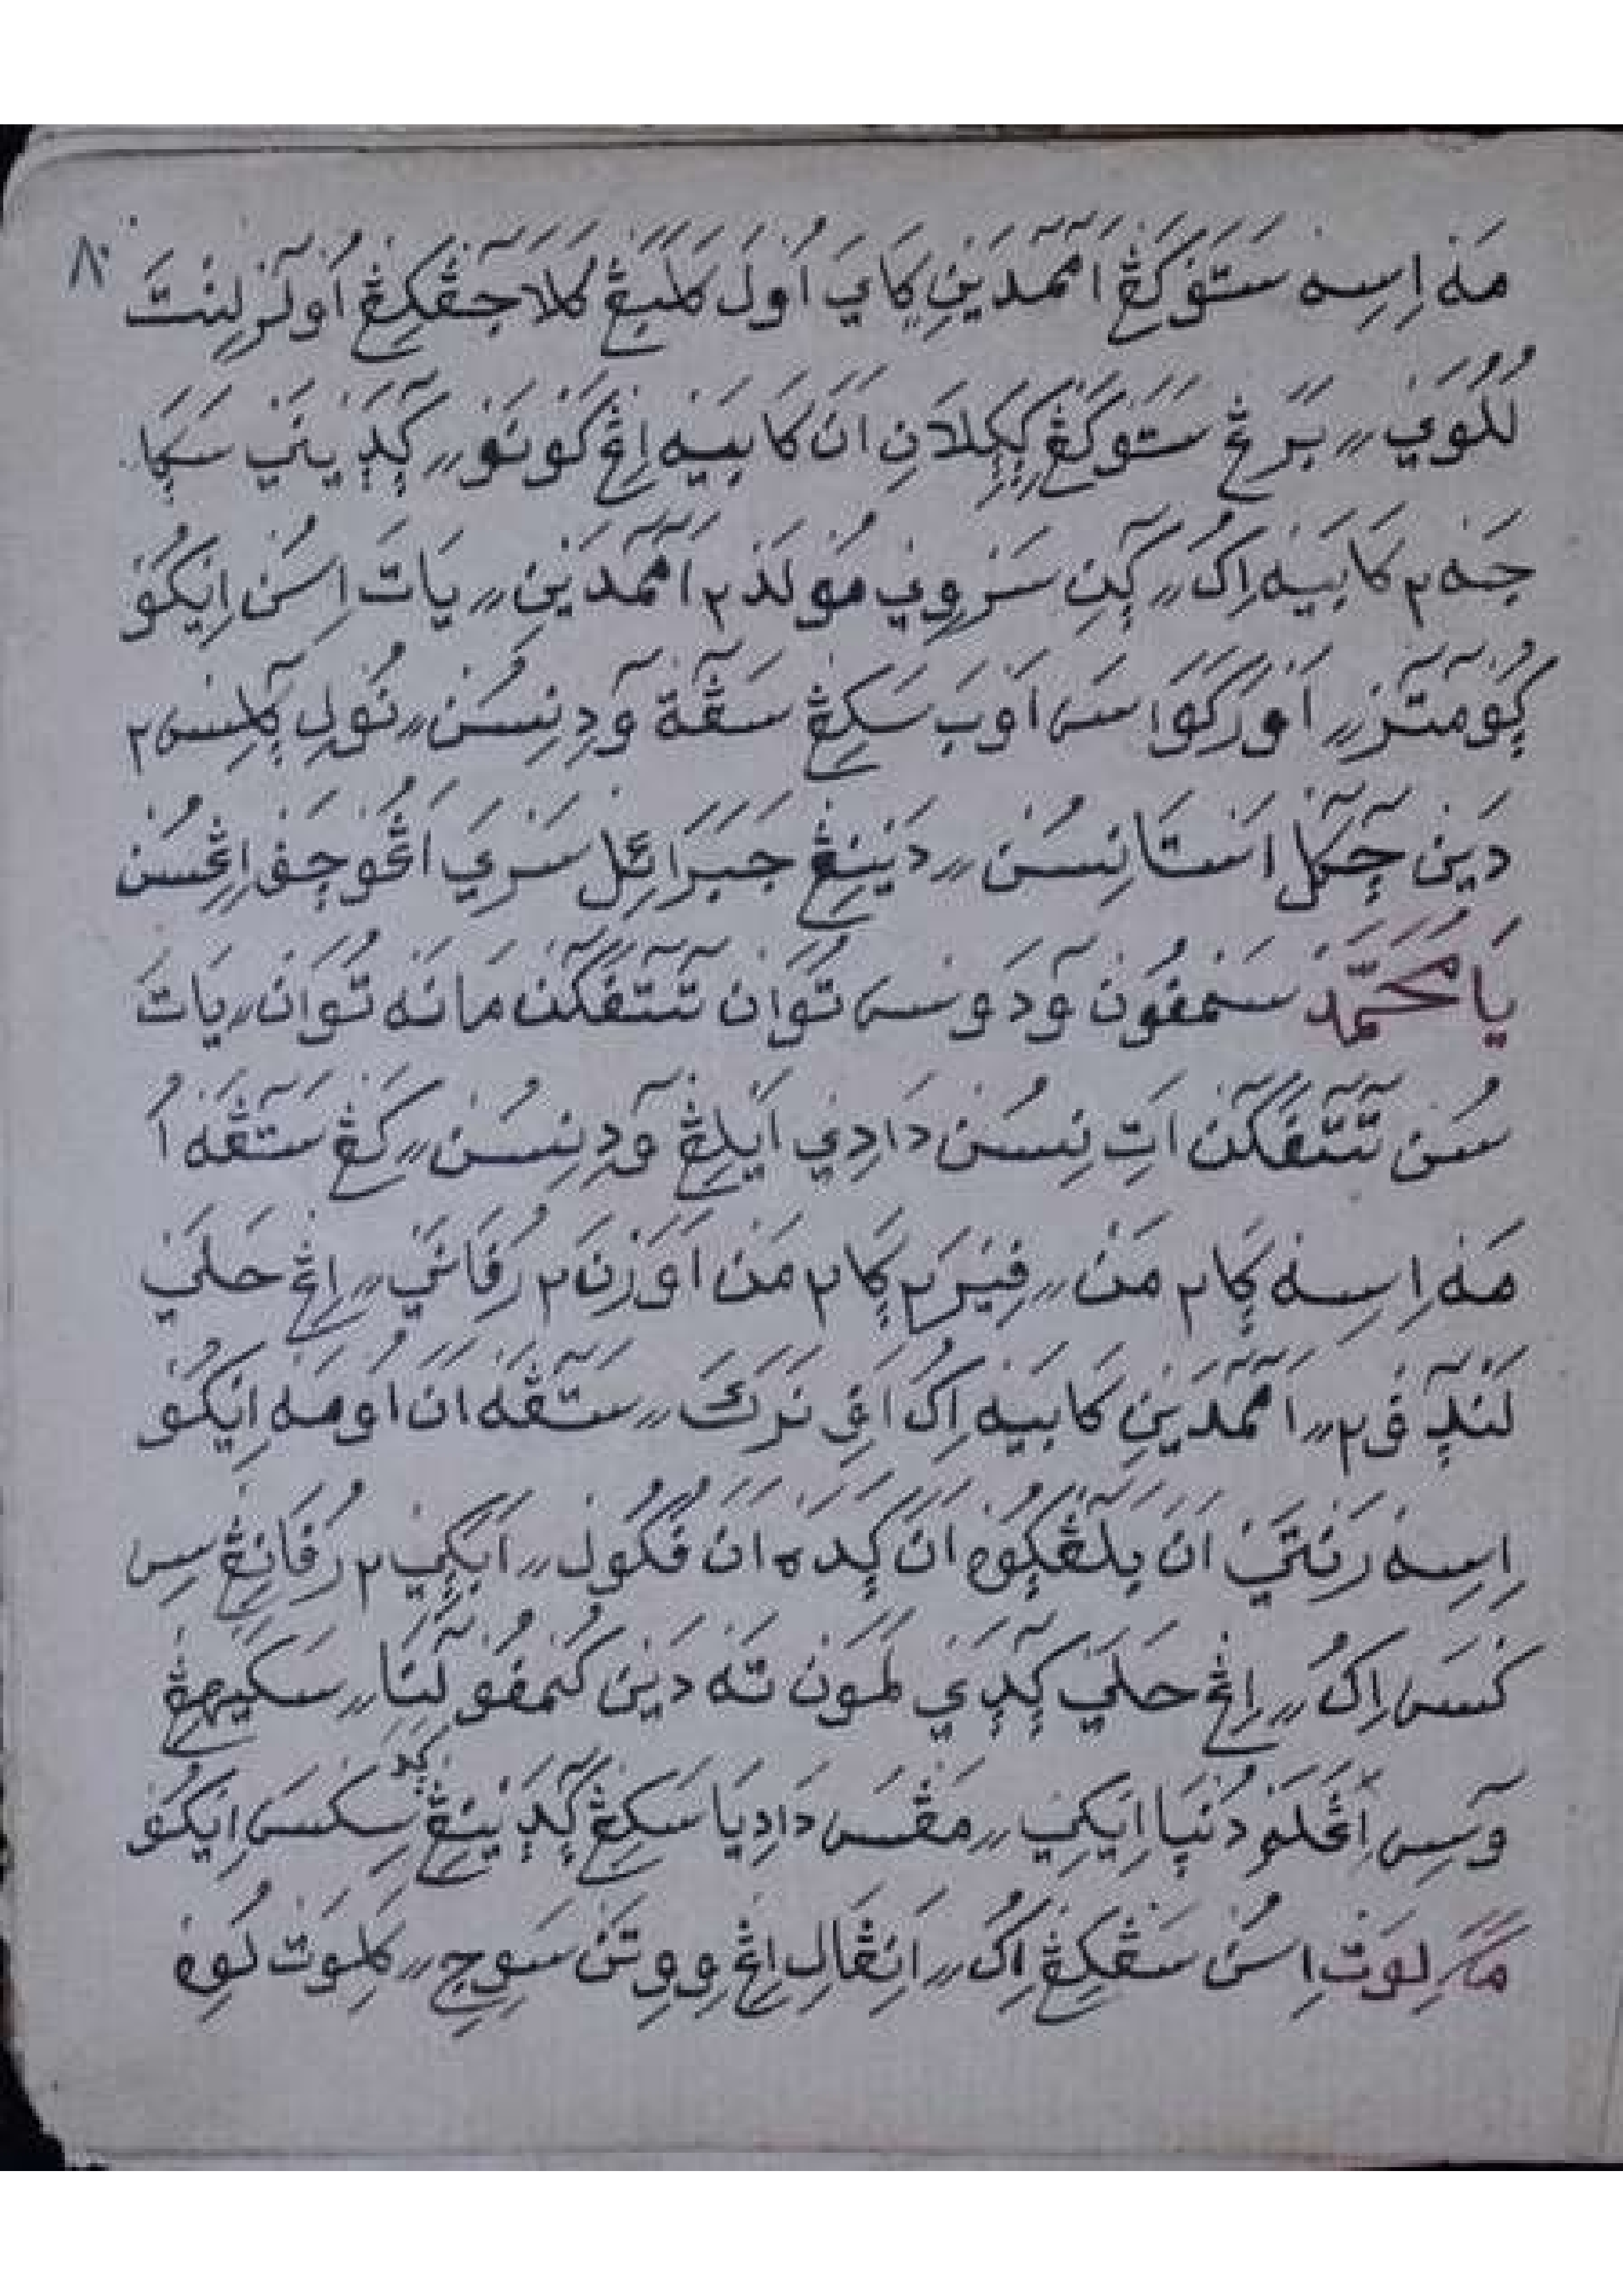 ٨٠
مَه اِسِه سَتَوَكَڠ اَمّٓدَيَنِ كَايَ اُولَ كَلَبَڠ كَلَا جٓڠكِڠ اُولٓر لِنتَ
لُلُوَيَ ؍؍ بَرَڠ سَتَوَكَڠ ࢴࢴِلَانِ اَنَ كَابَيَه اِڠ كَونَو ؍؍ ࢴٓڊَيَنَي سَࢴَا
جَنَه٢ كَابَيَه اِكُ ؍؍ ࢴٓنِ سَرَوِي مُولَد٢ اَمّٓدَيَنِ ؍؍ يَاتَ اِسُن اِيَكُو
ࢴُومٓتٓر ؍؍ اَوَركَوَاسَ اَوَبَ سَكِڠ سَڠٓة وٓدِنِسُن ؍؍ نُولِ ࢴَلِس٢
دَيَن چٓكٓل اَسْتَانِسُن ؍؍ دَيَنِڠ جَبَرَائِل سَرَيَ اَڠُوچَف اِڠسُن
يَا مُحَمَّد سَمفُون وٓدَوس تُوَان تٓتٓفَكٓن مَانَه تُوَان ؍؍ يَاتَ
سُن تٓتٓفَكٓن اَتِ نِسُن دَادِي اَيَلِڠ وٓدِنِسُن ؍؍ كَڠ سَتٓڠَه اُ
مَه اِسِه ࢴَا٢ مَن ؍؍ فِيَرَ٢ ࢴَا٢ مَن اَوَرنَ٢ رُفَانَي ؍؍ اِڠ حَلَي
لَنڊٓڤ٢ ؍؍ اَمّٓدَيَنِ كَابَيَه اِكُ اَڤِ نَرَكَ ؍؍ سَتٓڠَه اَنَ اُومَه اِيَكُو
اِسِه رَنتَي اَنَ بِلٓڠࢴُو اَنَ ࢴَدَه اَنَ فُكُول ؍؍ اَيَكِي٢ رُفَانِڠ سِ
كسَ اِكُ ؍؍ اِڠ حَلَي ࢴٓڊَي لَمَون تَه دَيَن كُمفُولٓنَا ؍؍ سَكَيَهِڠ
وٓسِ اَڠَلَو دُنيَا اَيَكِي ؍؍ مَڠسَ دَادِيَا سَكِڠ ࢴٓڊَيَنِڠ سِكسَ اِيَكُو
مَكَ لِوَتِ اِسُن سَڠكِڠ اِكُ ؍؍ اَنِڠَالِ اِڠ وِوِتَن سَوِجِ ؍؍ كَلِوَت لُوِه